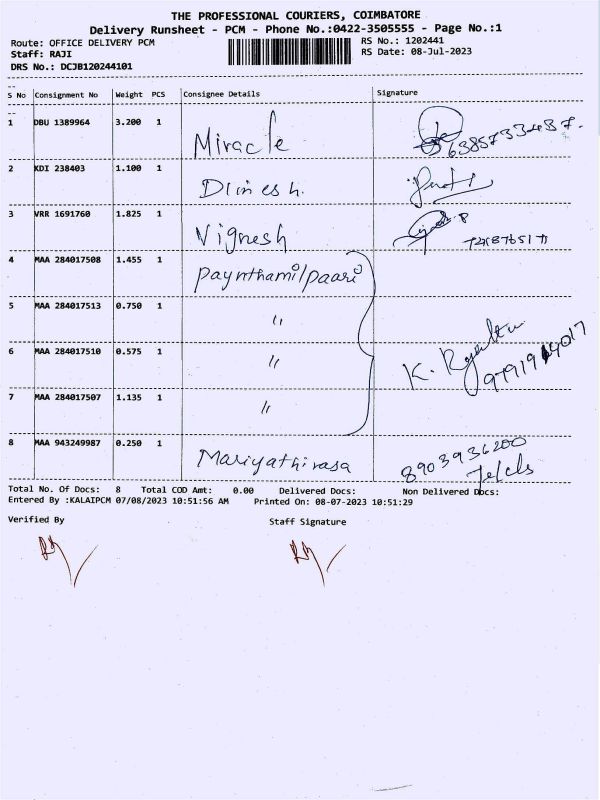 THE PROFESSIONAL COURIERS, COIMBATORE
Delivery Runsheet - PCM - Phone No.:0422-3505555 - Page No.:1
Route: OFFICE DELIVERY PCM RS No.: 1202441
Staff: RAJI RS Date: 08-Jul-2023
DRS No.: DCJB120244101
S No Consignment No Weight PCS Consignee Details Signature
1 DBU 1389964 3.200 1 Miracle
2 KDI 238403 1.100 1 Dinesh.
3 VRR 1691760 1.825 1 Vignesh
4 MAA 284017508 1.455 1 Paynthamilpaari
5 MAA 284017513 0.750 1 "
6 MAA 284017510 0.575 1 "
7 MAA 284017507 1.135 1 "
8 MAA 943249987 0.250 1 Mariyathirasa 8903936200
Total No. Of Docs: 8 Total COD Amt: 0.00 Delivered Docs: Non Delivered Docs:
Entered By :KALAIPCM 07/08/2023 10:51:56 AM Printed On: 08-07-2023 10:51:29
Verified By Staff Signature